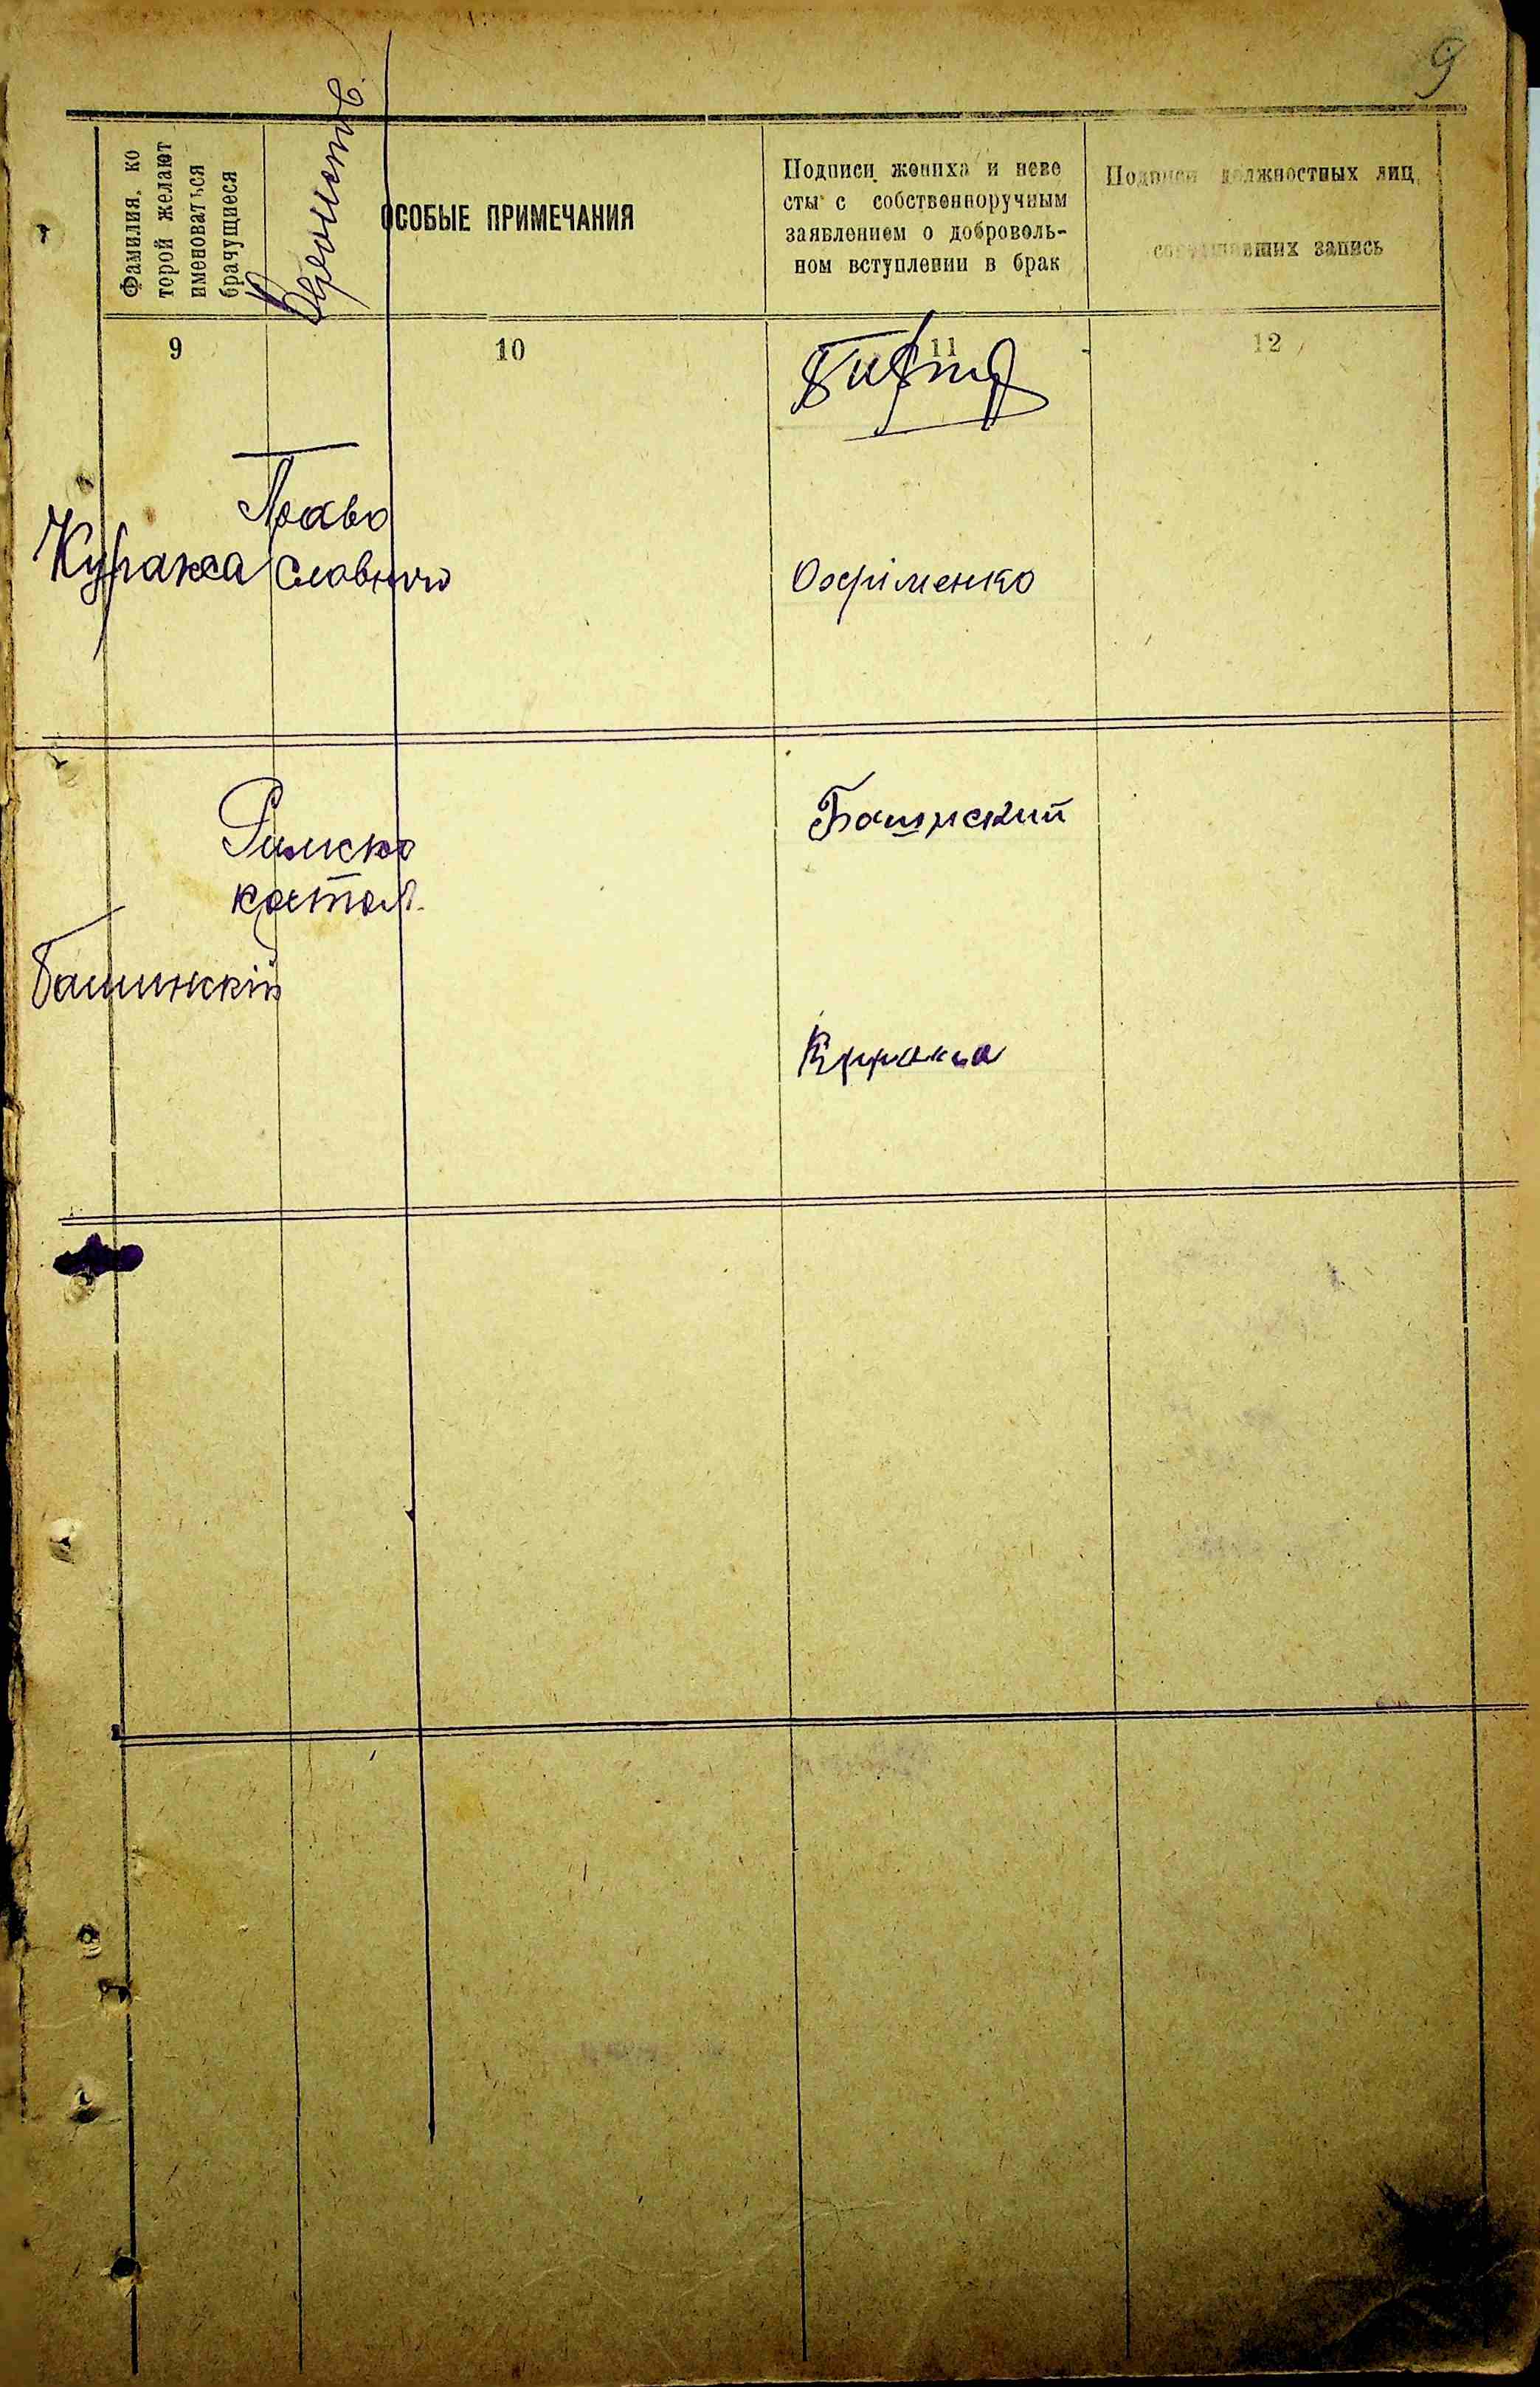 9
Фамилия, ко
торой желают
именоваться
брачущиеся
ОСОБЫЕ ПРИМЕЧАНИЯ
Подписи жениха и неве
сты с собственноручным
заявлением о доброволь-
ном вступлении в брак
Подписи должностных лиц,
запись
9
10
11
12
Право
Куракса
славного
Охріменко
Римско
катол.
Башинский
Башинскій